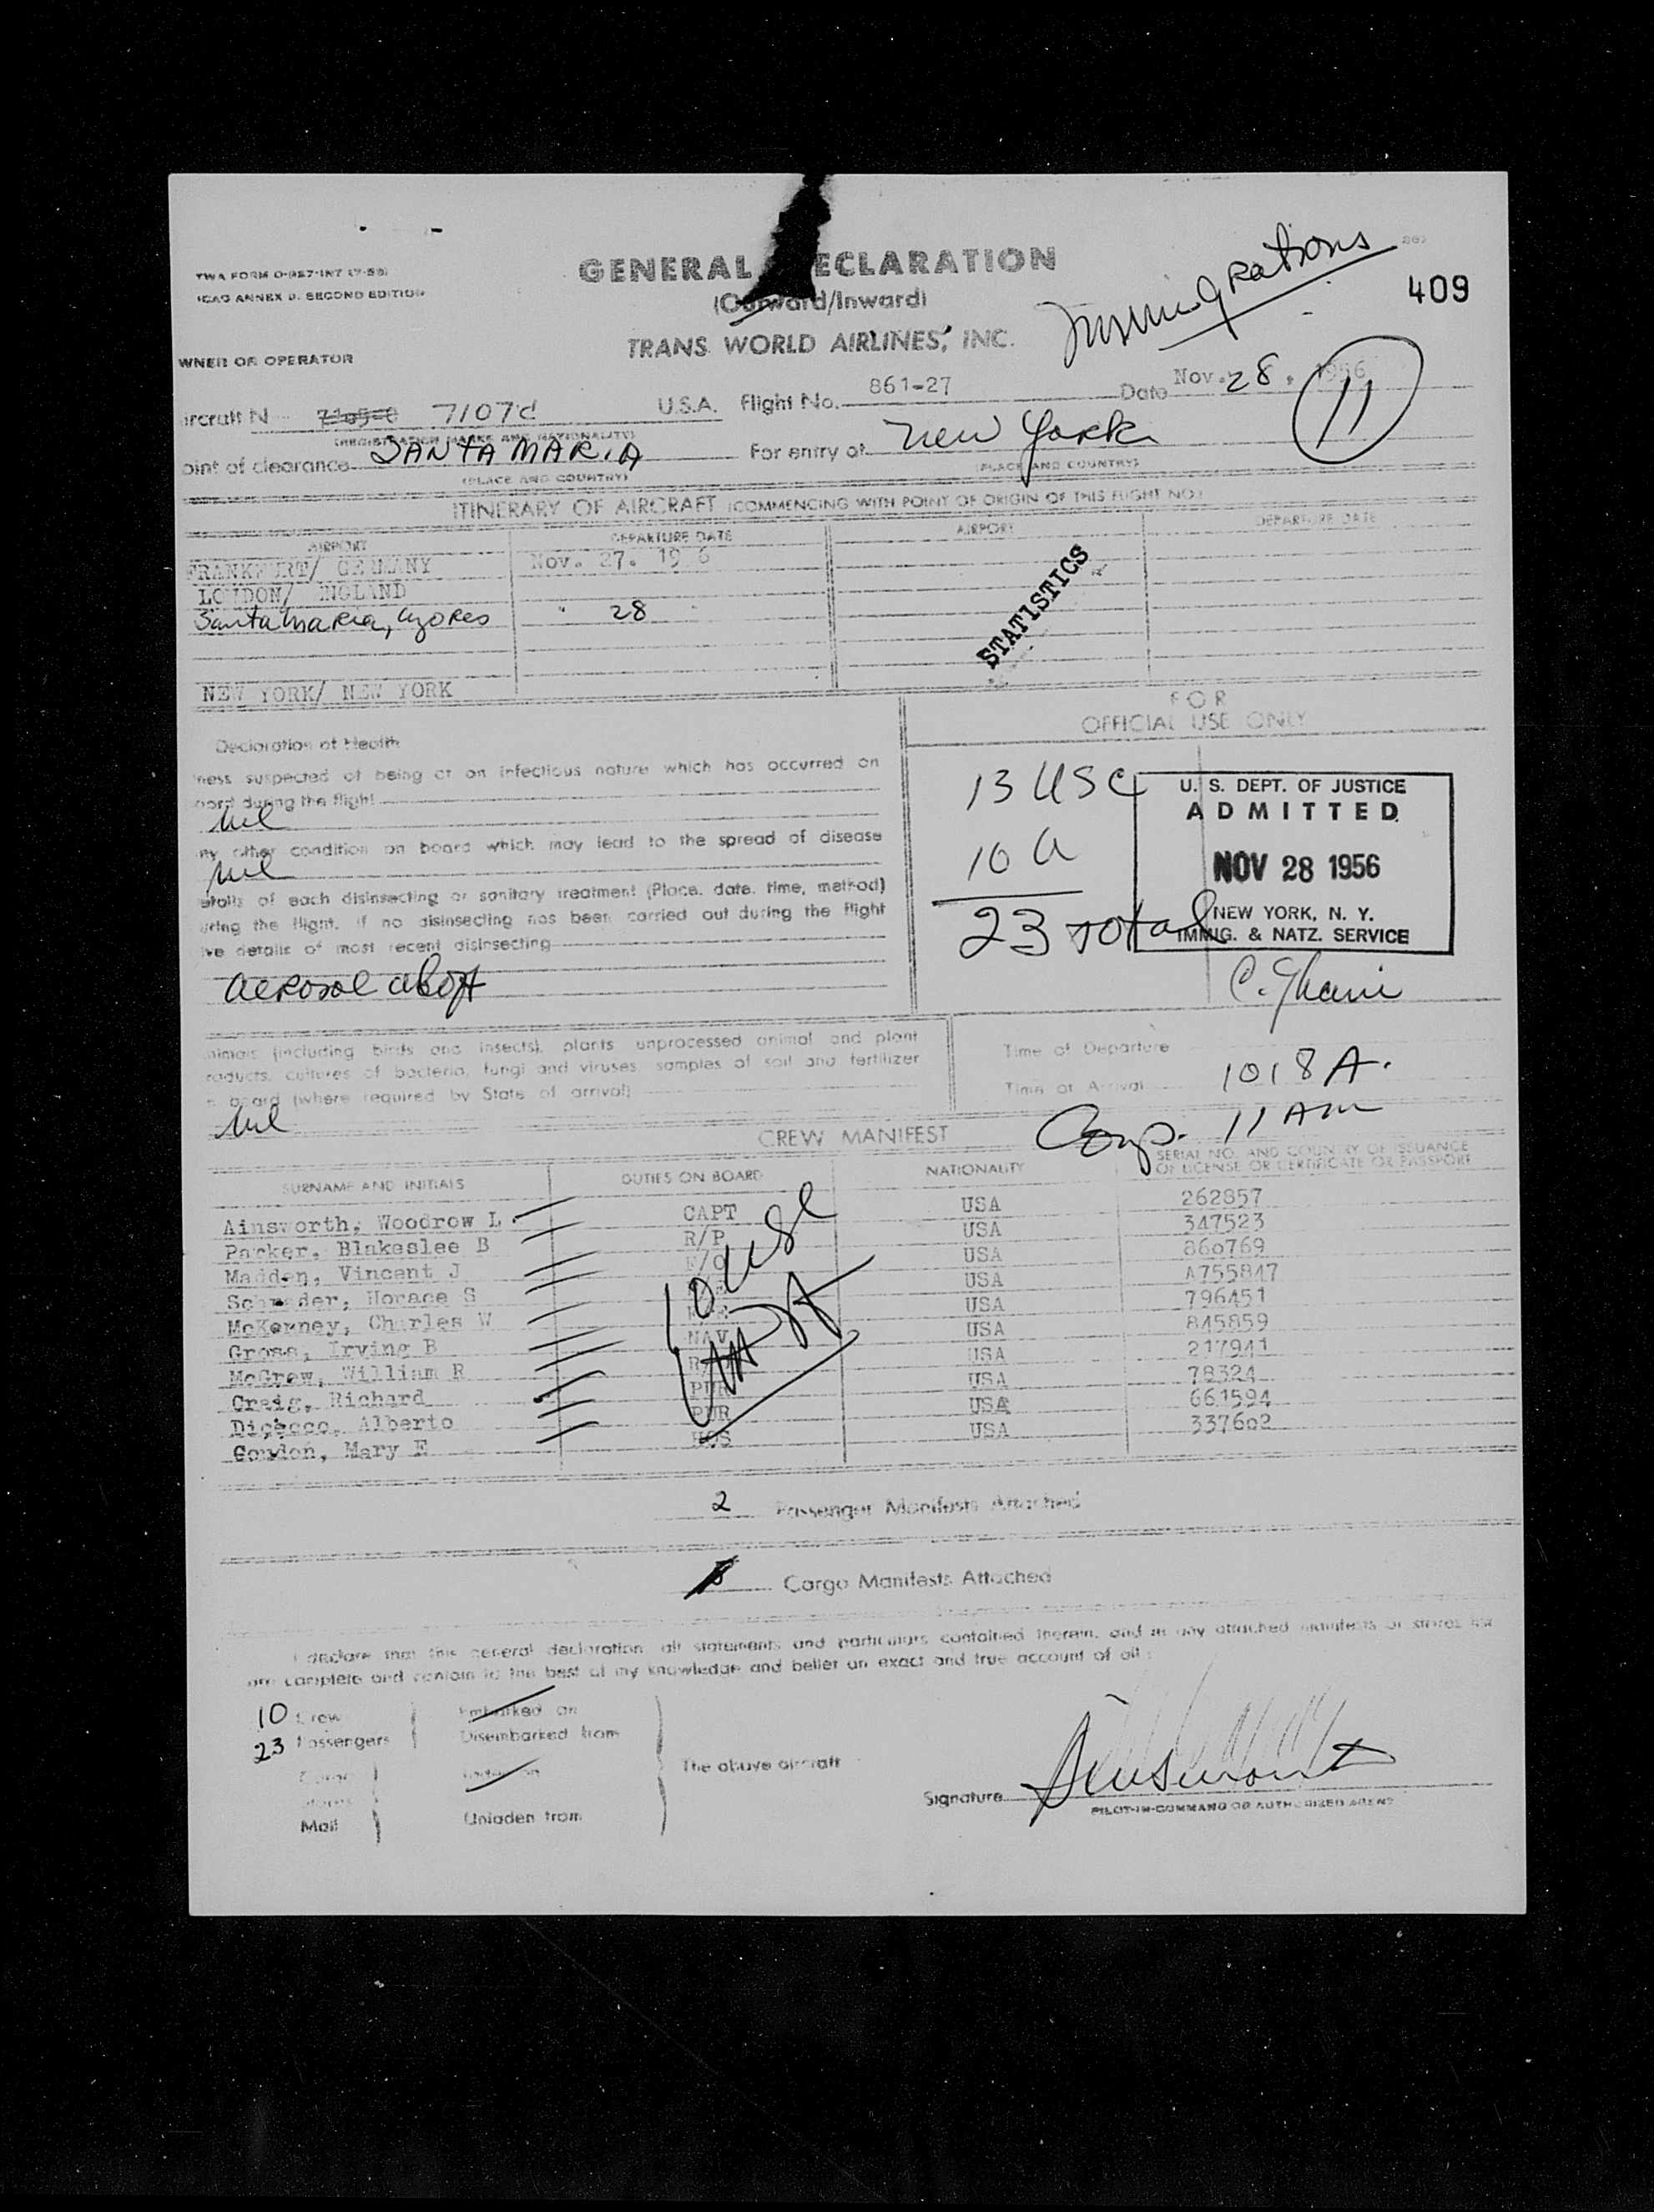 TWA FORM O-987-INT (7-55)
ICAO ANNEX 9, SECOND EDITION
GENERAL ECLARATION
(Outward/Inward)
TRANS WORLD AIRLINES, INC.
Immigrations
409
WNER OR OPERATOR
ircraft N 7107C U.S.A. Flight No. 861-27 Date Nov. 28, 1956
(REGISTRATION MARKS AND NATIONALITY)
11
oint of clearance SANTA MARIA For entry at New York
(PLACE AND COUNTRY) (PLACE AND COUNTRY)
ITINERARY OF AIRCRAFT (COMMENCING WITH POINT OF ORIGIN OF THIS FLIGHT NO.)
AIRPORT DEPARTURE DATE AIRPORT DEPARTURE DATE
FRANKFURT/ GERMANY Nov. 27. 19 6
LONDON/ ENGLAND
Santa Maria, Azores " 28
STATISTICS
NEW YORK/ NEW YORK
FOR
OFFICIAL USE ONLY
Declaration of Health
lness suspected of being of an infectious nature which has occurred on
oard during the flight
Nil
ny other condition on board which may lead to the spread of disease
Nil
etails of each disinsecting or sanitary treatment (Place, date, time, method)
uring the flight. If no disinsecting has been carried out during the flight
ive details of most recent disinsecting
Aerosol aloft
13 USC
10 A
23 Total
U. S. DEPT. OF JUSTICE
ADMITTED
NOV 28 1956
NEW YORK, N. Y.
IMMIG. & NATZ. SERVICE
nimals (including birds and insects), plants unprocessed animal and plant
roducts, cultures of bacteria, fungi and viruses, samples of soil and fertilizer
n board (where required by State of arrival)
Nil
Time of Departure
Time of Arrival 1018 A.
Comp. 11 AM
CREW MANIFEST
SURNAME AND INITIALS DUTIES ON BOARD NATIONALITY SERIAL NO. AND COUNTRY OF ISSUANCE
OF LICENSE OR CERTIFICATE OR PASSPORT
Ainsworth, Woodrow L. CAPT USA 262857
Parker, Blakeslee B R/P USA 347523
Madden, Vincent J F/O USA 860769
Schrader, Horace S USA A755847
McKenney, Charles W USA 796451
Gross, Irving B NAV USA 845859
McGrew, William R USA 217941
Craig, Richard PUR USA 78324
Dicecco, Alberto PUR USA 661594
Gordon, Mary E HOS USA 337602
10 USC
2 Passenger Manifests Attached
Cargo Manifests Attached
I declare that this general declaration all statements and particulars contained therein, and in any attached manifests or stores list
are complete and contain to the best of my knowledge and belief an exact and true account of all:
10 Crew Embarked on
23 Passengers Disembarked from
The above aircraft
Cargo
Stores
Mail Unladen from
Signature
PILOT-IN-COMMAND OR AUTHORIZED AGENT